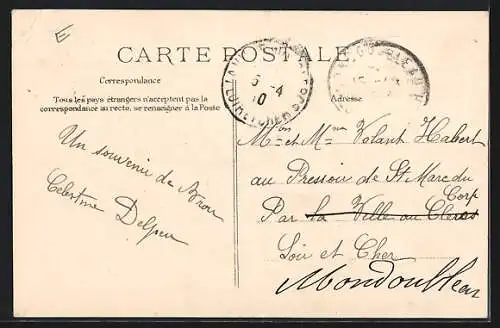 E
CARTE POSTALE
Correspondance
Tous les pays étrangers n'acceptent pas la
correspondance au recto, se renseigner à la Poste
Adresse
6-4
10
LOIR-ET-CHER
Un souvenir de Brou
Celestine Delpeu
Mon et Mme Volant Habert
au Pressoir de St Marc du Corp
Par la Ville au Clercs
Loir et Cher
Mondoubleau